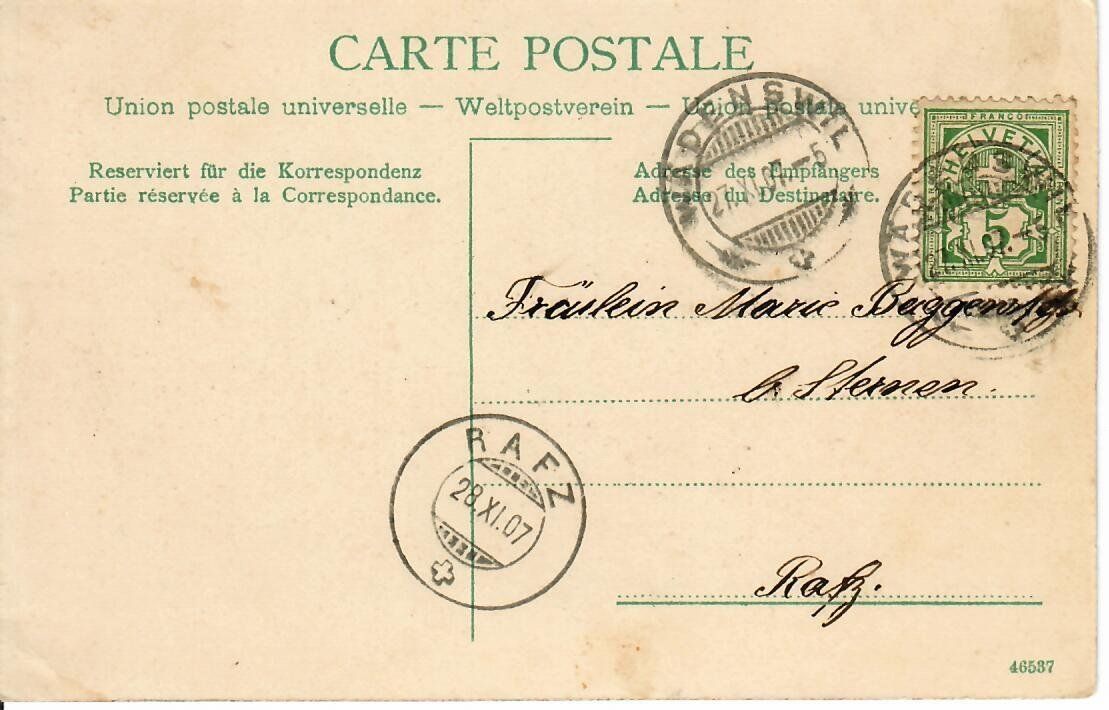 CARTE POSTALE
Union postale universelle — Weltpostverein — Union postale unive
Reserviert für die Korrespondenz
Partie réservée à la Correspondance.
Adresse des Empfängers
Adresse du Destinataire.
WÄDENSWIL
27.XI.07.–5
FRANCO
HELVETIA
5
WÄDENSWIL
Fräulein Marie
b. Sternen.
RAFZ
28.XI.07
Rafz.
46537